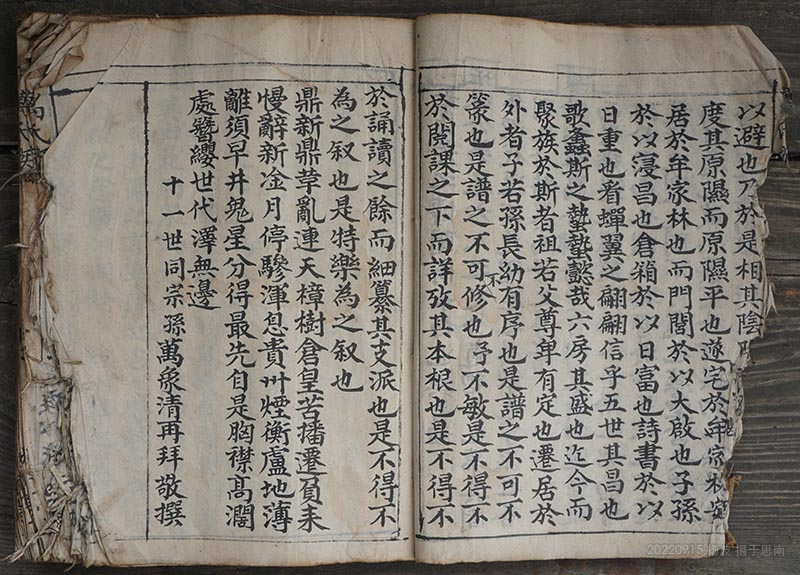 以避也乃於是相其陰
度其原隰而原隰平也遂宅於牟家林
居於牟家林也而門閭於以大啟也子孫
於以寢昌也倉箱於以日富也詩書於以
日重也看蟬翼之翩翩信乎五世其昌也
歌螽斯之蟄蟄懿哉六房其盛也迄今而
聚族於斯者祖若父尊卑有定也遷居於
外者子若孫長幼有序也是譜之不可不
篆也是譜之不可不修也予不敏是不得不
於閱課之下而詳攷其本根也是不得不
於誦讀之餘而細纂其支派也是不得不
為之叙也是特樂為之叙也
鼎新鼎革亂連天樟樹倉皇苦播遷負耒
慢辭新淦月停驂渾忽貴州煙衡盧地薄
離須早井鬼星分得最先自是胸襟高濶
處簪纓世代澤無邊
十一世同宗孫萬象清再拜敬撰
20220915 摄于思南